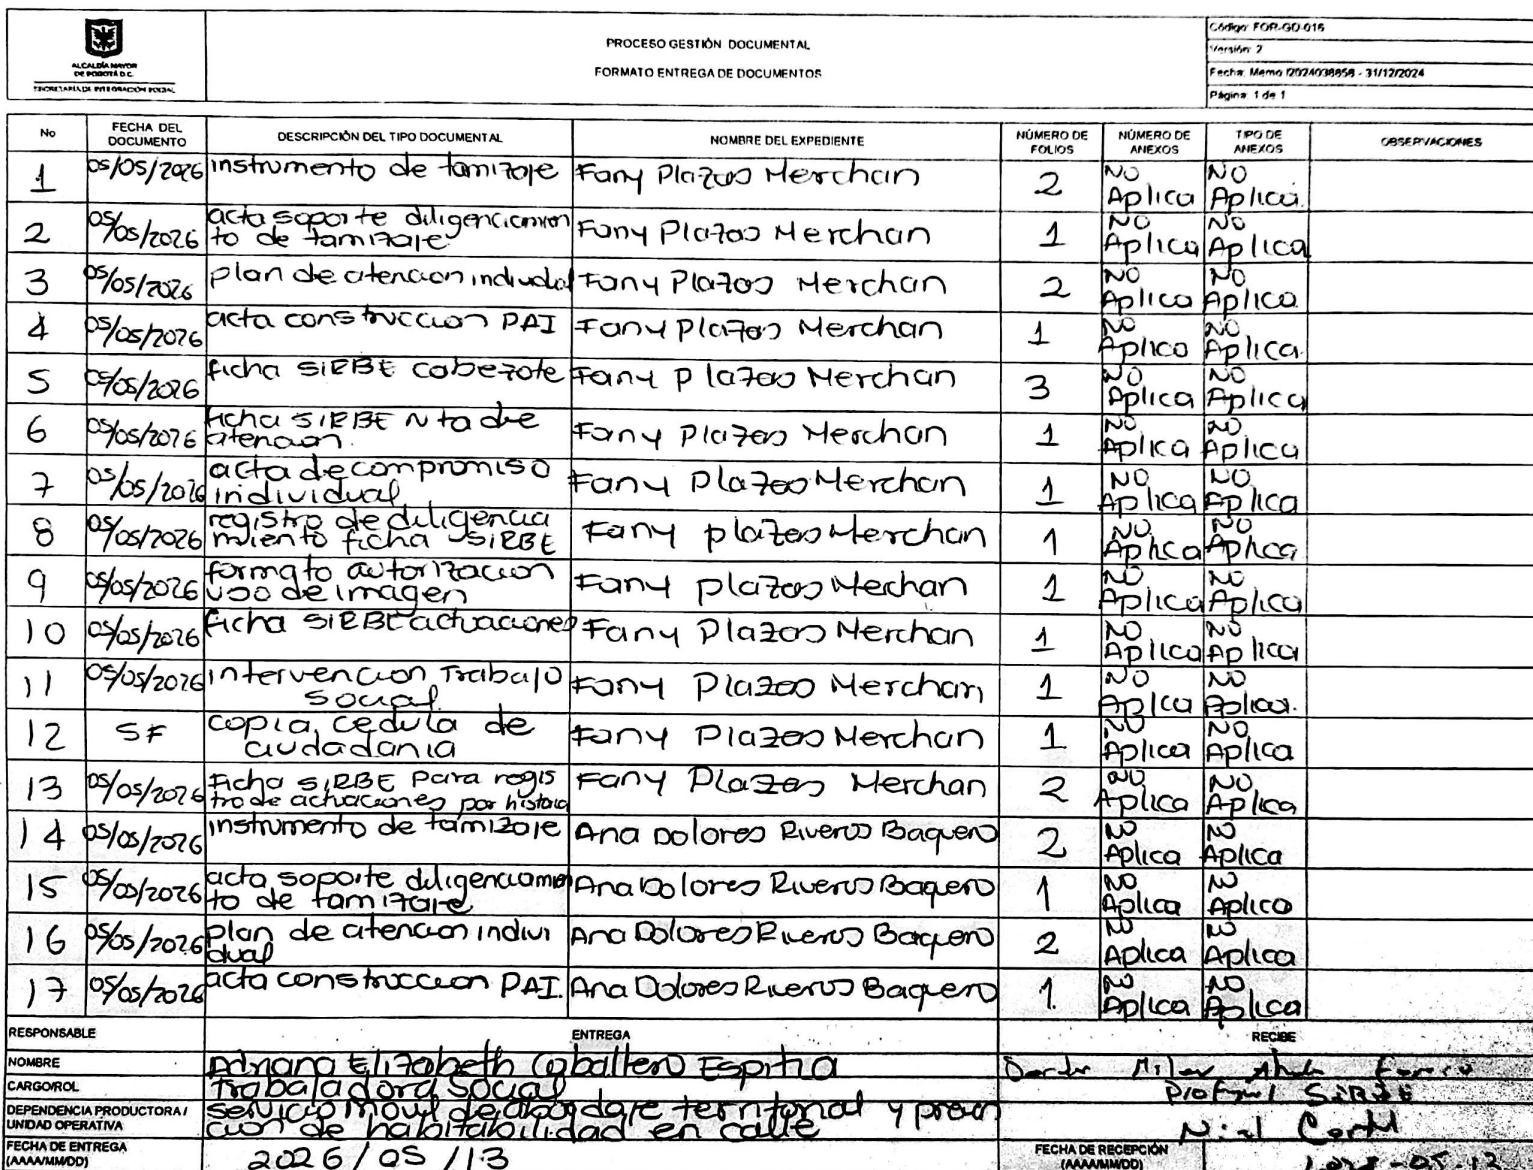 ALCALDÍA MAYOR
DE BOGOTÁ D.C.
SECRETARÍA DE INTEGRACIÓN SOCIAL
PROCESO GESTIÓN DOCUMENTAL
FORMATO ENTREGA DE DOCUMENTOS
Código: FOR-GD-016
Versión: 2
Fecha: Memo I2024038858 - 31/12/2024
Página: 1 de 1
No FECHA DEL DOCUMENTO DESCRIPCIÓN DEL TIPO DOCUMENTAL NOMBRE DEL EXPEDIENTE NÚMERO DE FOLIOS NÚMERO DE ANEXOS TIPO DE ANEXOS OBSERVACIONES
1 05/05/2026 instrumento de tamizaje Fany Plazas Merchan 2 NO Aplica NO Aplica.
2 05/05/2026 acta soporte diligenciamien to de tamizaje Fany Plazas Merchan 1 NO Aplica NO Aplica
3 05/05/2026 plan de atencion individal Fany Plazas Merchan 2 NO Aplica NO Aplica.
4 05/05/2026 acta construccion PAI Fany Plazas Merchan 1 NO Aplica NO Aplica.
5 05/05/2026 ficha SIRBE cabezote Fany Plazas Merchan 3 NO Aplica NO Aplica
6 05/05/2026 ficha SIRBE N ta de atencion. Fany Plazas Merchan 1 NO Aplica NO Aplica
7 05/05/2026 acta de compromiso individual Fany Plazas Merchan 1 NO Aplica NO Aplica
8 05/05/2026 registro de diligencia miento ficha SIRBE Fany plazas Merchan 1 NO Aplica NO Aplica
9 05/05/2026 formato autorizacion uso de imagen Fany plazas Mechan 1 NO Aplica NO Aplica
10 05/05/2026 ficha SIRBE actuaciones Fany Plazas Merchan 1 NO Aplica NO Aplica
11 05/05/2026 intervencion Trabajo social. Fany Plazas Merchan 1 NO Aplica NO Aplica.
12 SF copia cedula de ciudadania Fany Plazas Merchan 1 NO Aplica NO Aplica
13 05/05/2026 Ficha SIRBE Para regis tro de actuaciones por historia Fany Plazas Merchan 2 NO Aplica NO Aplica
14 05/05/2026 instrumento de tamizaje Ana Dolores Riveros Baquero 2 NO Aplica NO Aplica
15 05/05/2026 acta soporte diligenciamien to de tamizaje Ana Dolores Riveros Baquero 1 NO Aplica NO Aplica
16 05/05/2026 plan de atencion indivi dual Ana Dolores Riveros Baquero 2 NO Aplica NO Aplica
17 05/05/2026 acta construccion PAI. Ana Dolores Riveros Baquero 1. NO Aplica NO Aplica
RESPONSABLE ENTREGA RECIBE
NOMBRE Adriana Elizabeth Caballero Espitia
CARGO/ROL Trabajadora Social SIRBE
DEPENDENCIA PRODUCTORA / UNIDAD OPERATIVA servicio movil de abordaje territorial y preven cion de habitabilidad en calle
FECHA DE ENTREGA (AAAA/MM/DD) 2026/05/13 FECHA DE RECEPCIÓN (AAAA/MM/DD)